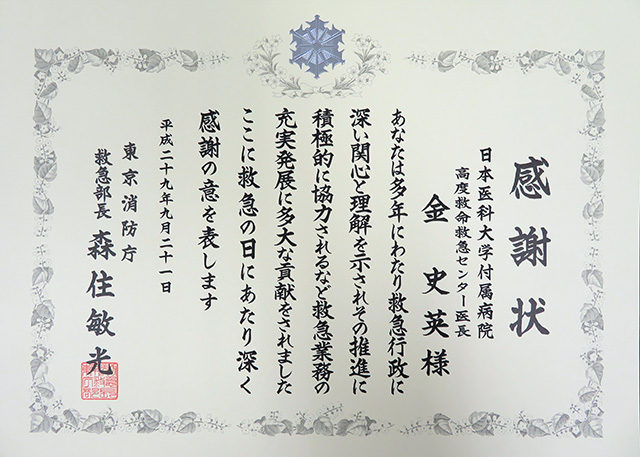 感謝状
日本医科大学付属病院
高度救命救急センター医長
金史英様
あなたは多年にわたり救急行政に
深い関心と理解を示されその推進に
積極的に協力されるなど救急業務の
充実発展に多大な貢献をされました
ここに救急の日にあたり深く
感謝の意を表します
平成二十九年九月二十一日
東京消防庁
救急部長 森住敏光